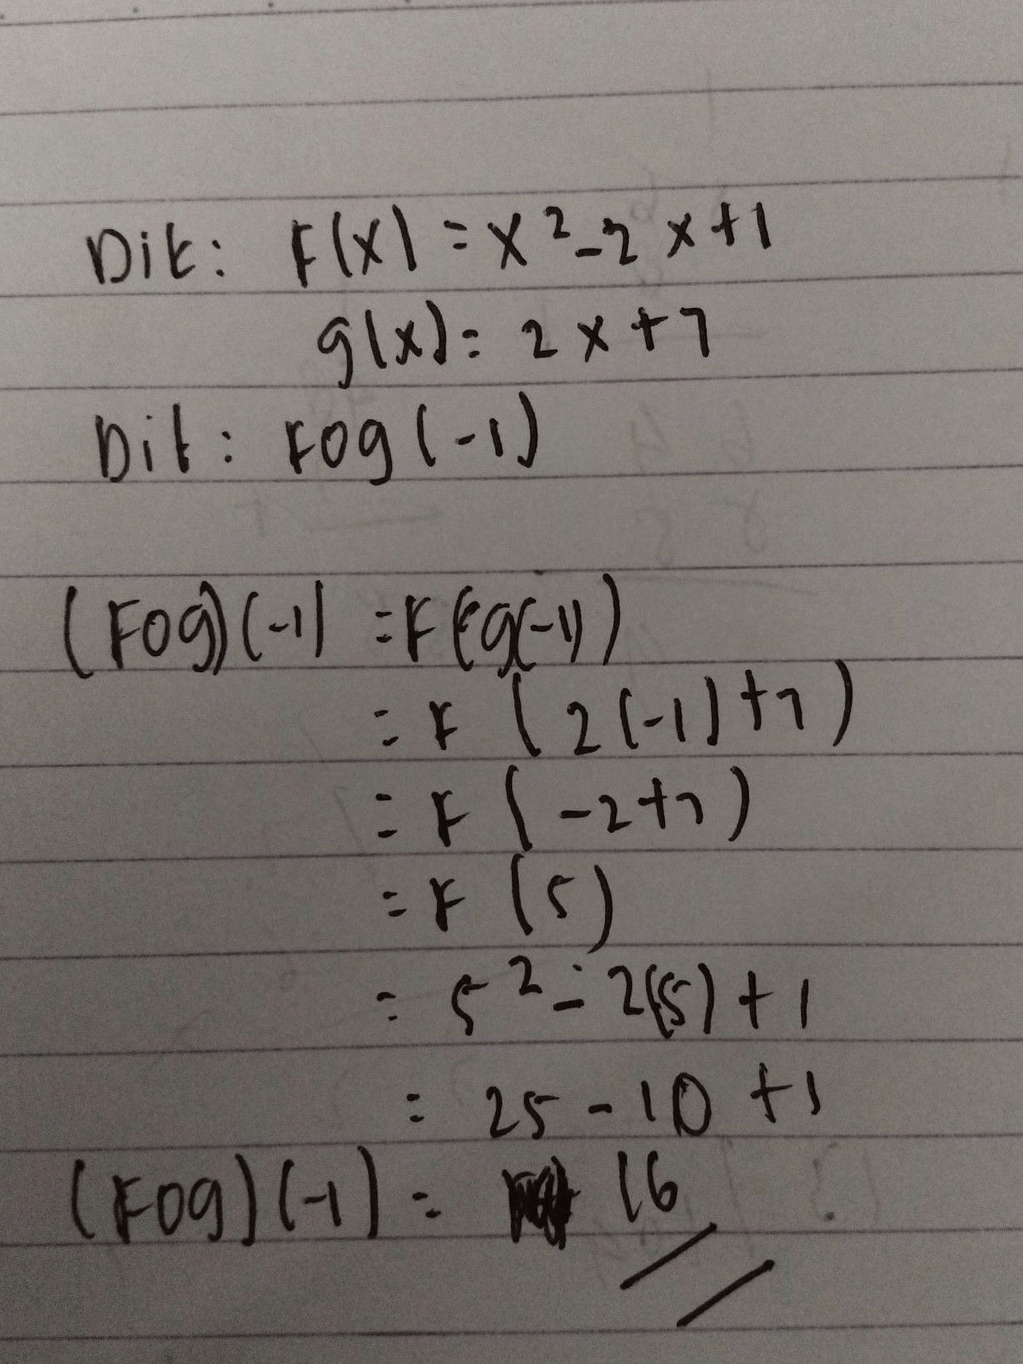 Dik: F(x) = x² - 2x + 1
g(x) = 2x + 7
Dit: Fog (-1)
(Fog)(-1) = F(g(-1))
= F (2(-1) + 7)
= F (-2+7)
= F (5)
= 5² - 2(5) + 1
= 25 - 10 + 1
(Fog)(-1) = 16